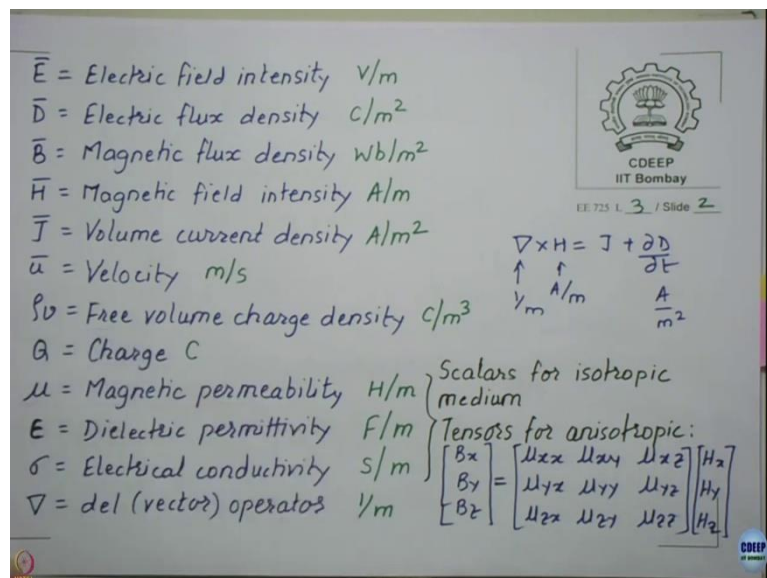 E̅ = Electric field intensity V/m
D̅ = Electric flux density C/m²
B̅ = Magnetic flux density Wb/m²
H̅ = Magnetic field intensity A/m
J̅ = Volume current density A/m²
u̅ = Velocity m/s
ρv = Free volume charge density C/m³
Q = Charge C
μ = Magnetic permeability H/m
ε = Dielectric permittivity F/m
σ = Electrical conductivity S/m
∇ = del (vector) operator 1/m
CDEEP
IIT Bombay
EE 725 L 3 / Slide 2
∇ × H = J + ∂D/∂t
↑ ↑
1/m A/m A/m²
Scalars for isotropic
medium
Tensors for anisotropic:
[Bx] [μxx μxy μxz] [Hx]
[By] = [μyx μyy μyz] [Hy]
[Bz] [μzx μzy μzz] [Hz]
CDEEP
IIT BOMBAY